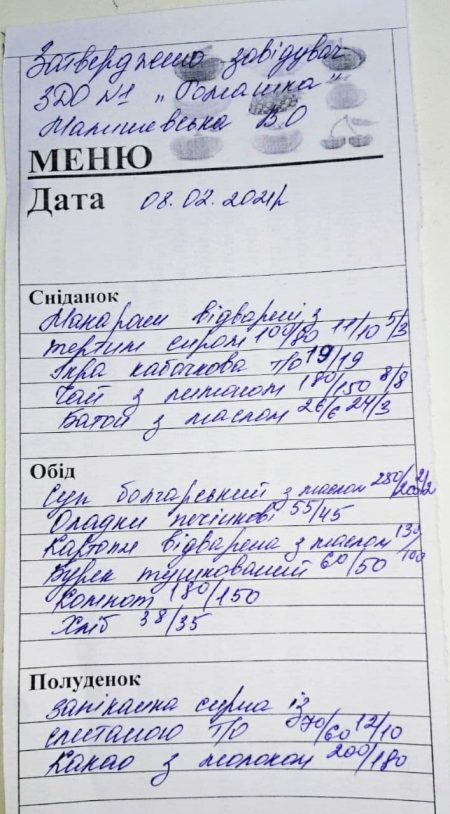 Затверджено завідувач
ЗДО №1 „Ромашка"
В.О
МЕНЮ
Дата 08.02.2021р
Сніданок
Макарони відварені з
тертим сиром 100/80 11/10 5/3
Ікра кабачкова т/о 19/19
Чай з лимоном 180/150 8/8
Батон з маслом 26/6 24/3
Обід
Суп болгарський з маслом 250/200 2/2
Оладки печінкові 55/45
Картопля відварена з маслом 130/100
Буряк тушкований 60/50
Компот 180/150
Хліб 38/35
Полуденок
Запіканка сирна із
сметаною т/о 70/60 12/10
Какао з молоком 200/180